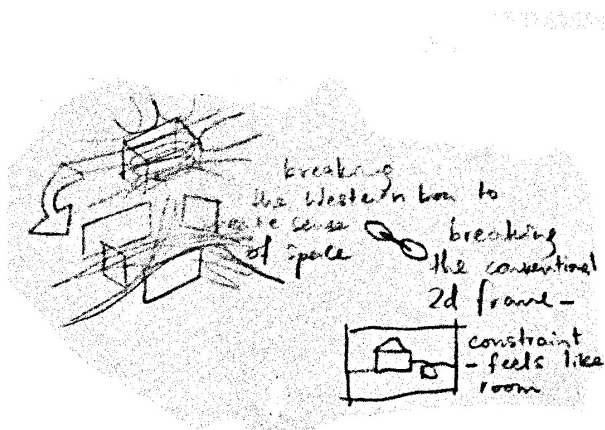 breaking
the Western box to
create sense
of space
breaking
the conventional
2d frame –
constraint
– feels like
room